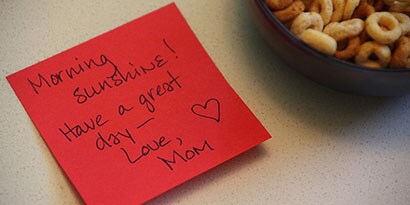 Morning
sunshine!
Have a great
day—
Love,
Mom